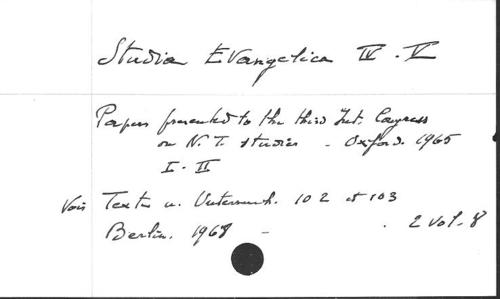 Studia Evangelica IV - V
Papers presented to the third Int. Congress
on N. T. studies - Oxford. 1965
I - II
Vois Texte u. Untersuch. 102 et 103
Berlin. 1968 - . 2 vol. 8